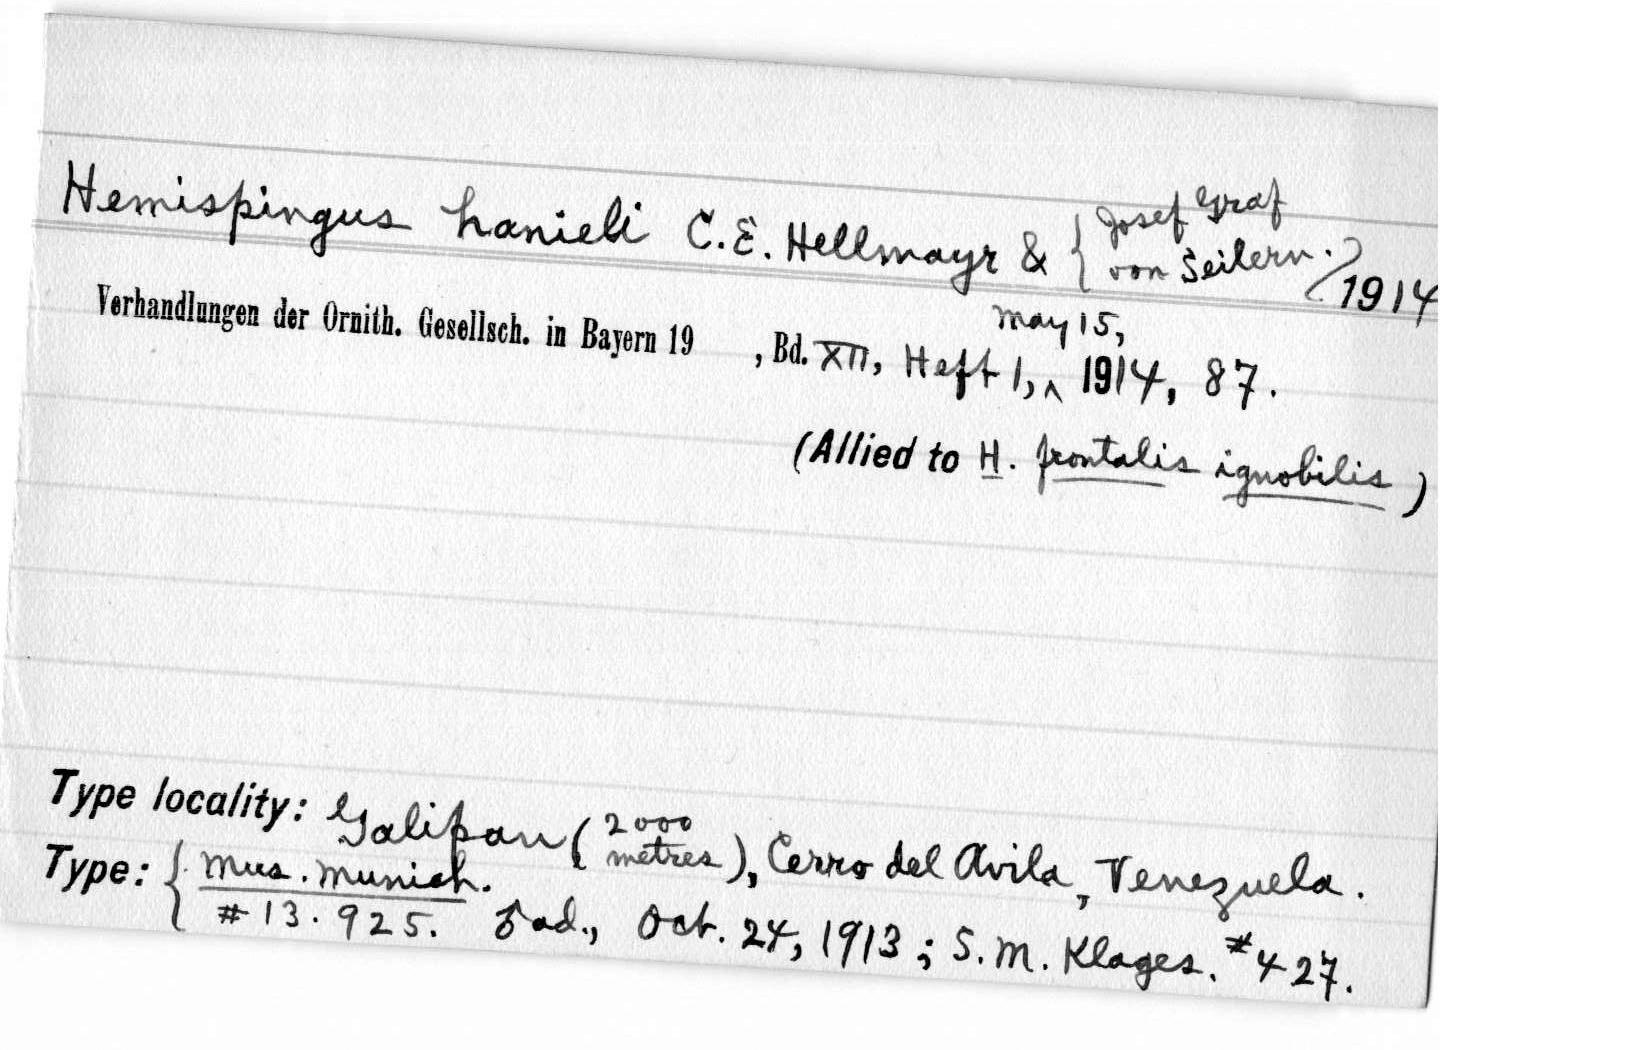 Hemispingus hanieli C. E. Hellmayr & { Josef Graf von Seilern. / 1914
Verhandlungen der Ornith. Gesellsch. in Bayern 19 , Bd. XII, Heft 1, ^ May 15, 1914, 87.
(Allied to H. frontalis ignobilis)
Type locality: Galipan ( 2000 metres ), Cerro del Avila, Venezuela.
Type: { Mus. Munich.
# 13.925. ♂ ad., Oct. 24, 1913; S. M. Klages. #427.